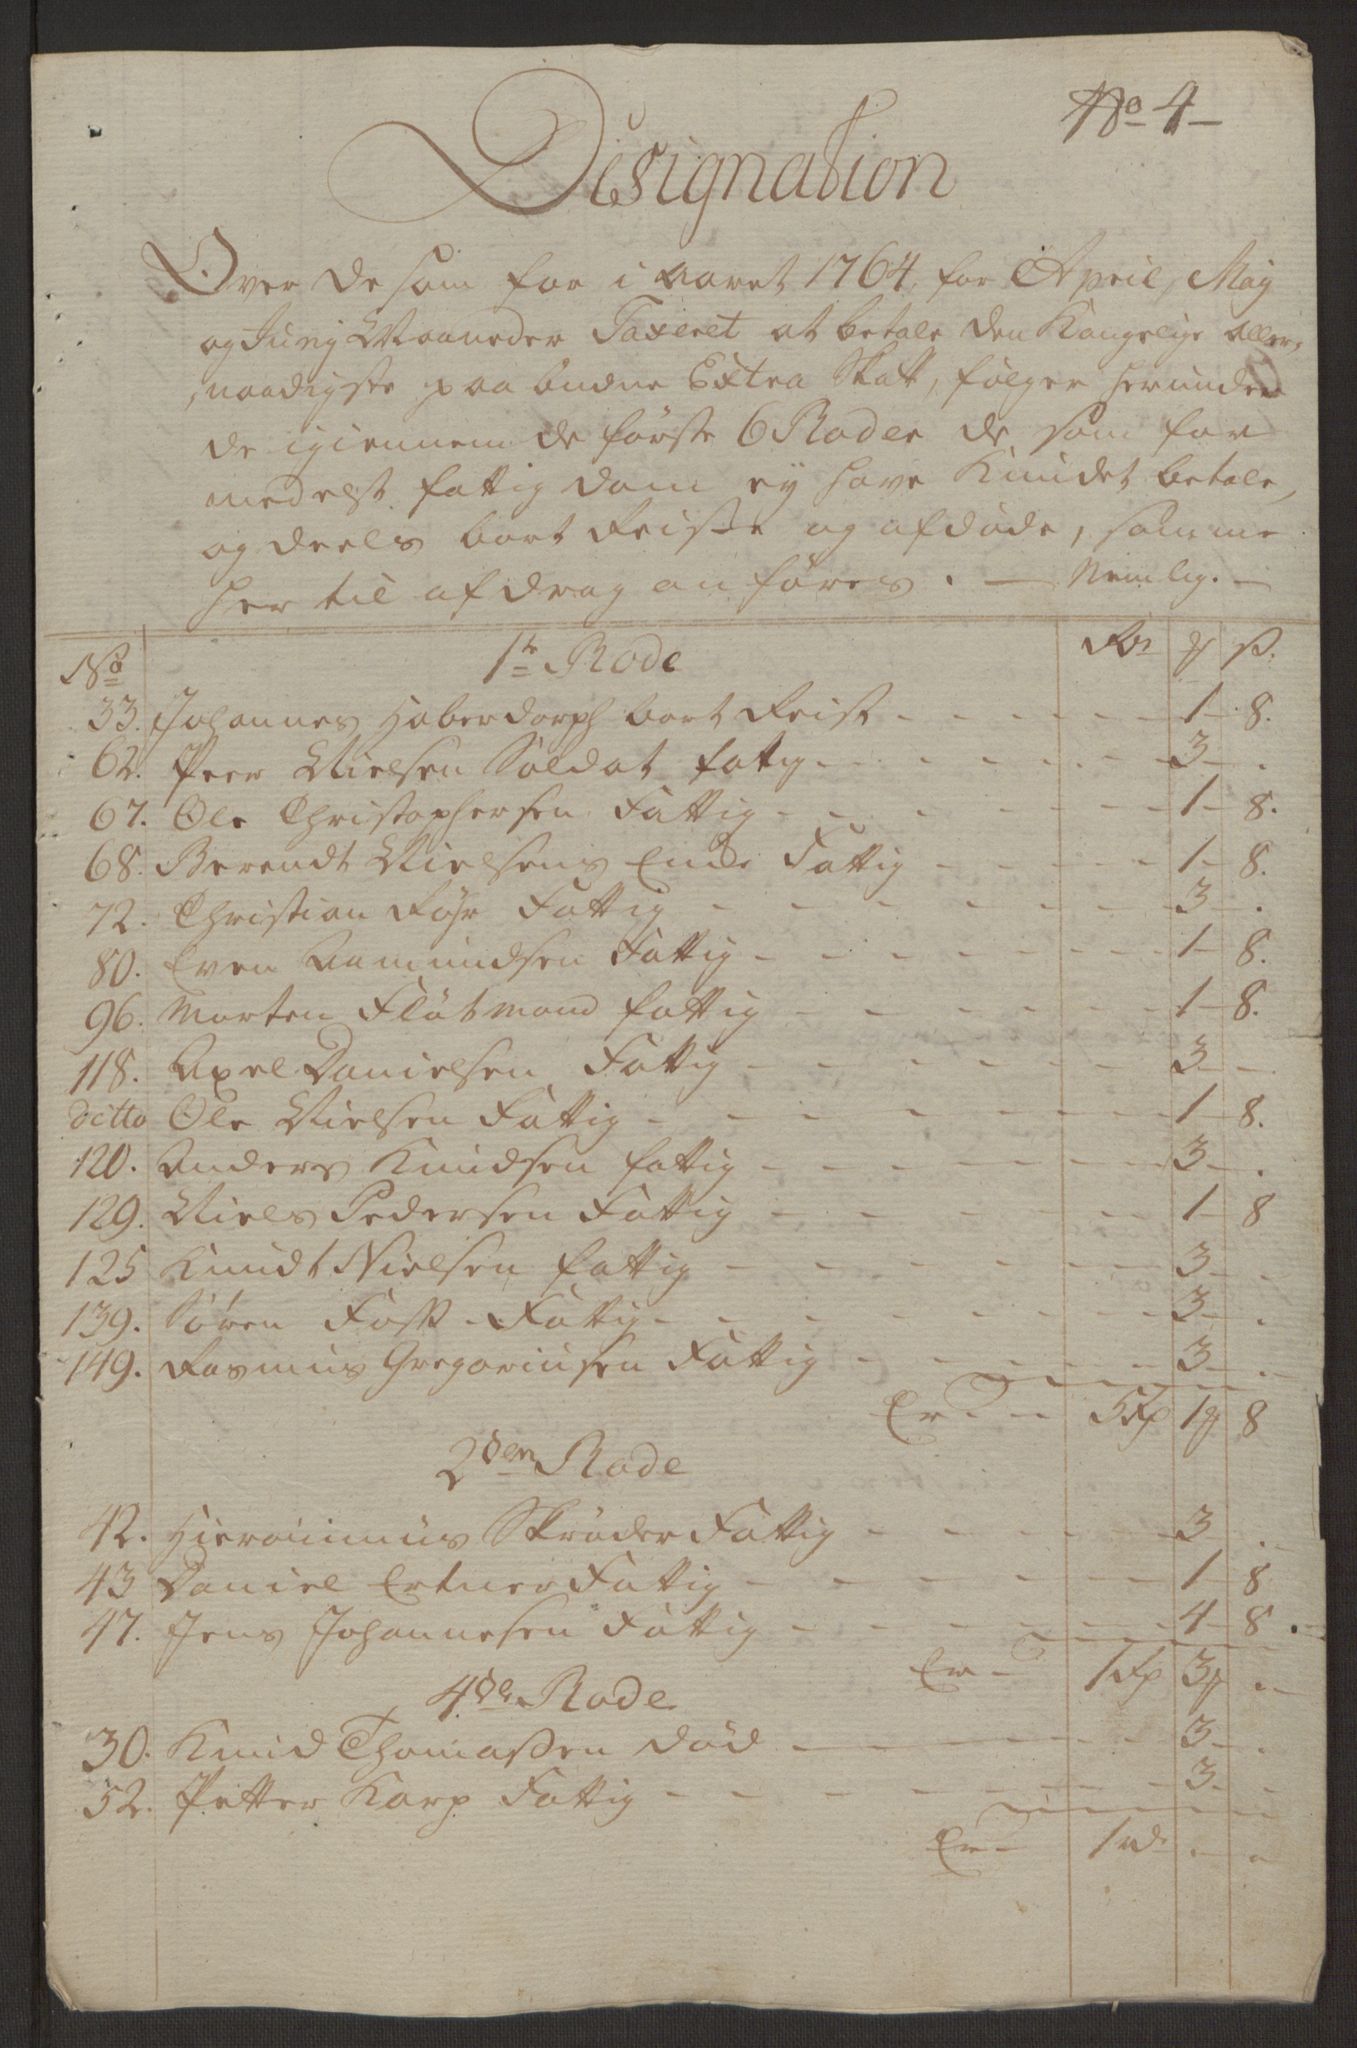 No 4
Designation
Over de som for i Aaret 1764, for April, Maÿ
og Junÿ Maaneder Taxeret at betale den Kongelige Aller,
naadigste paabudne Extra Skatt, følger herunder
de igiennem de første 6 Roder de som for
medelst fattigdom eÿ have Kundet betale,
og deels bort Reiste og afdøde, somme
her til afdrag anføres. — Nemlig. —
No 1te Rode Rdr ℳ ß.
33. Johannes Haberdorph bort Reist - - - 1 - 8.
62. Peer Nielsen Soldat fattig - - - 3 - .
67. Ole Christophersen Fattig - - - 1 - 8.
68. Berendt Nielsens Encke Fattig - - - 1 - 8.
72. Christian Röhr Fattig - - - 3 - .
80. Even Aamundsen Fattig - - - 1 - 8.
96. Morten Flötmand fattig - - - 1 - 8.
118. Axel Danielsen Fattig - - - 3 - -
ditto Ole Nielsen Fattig - - - 1 - 8.
120. Anders Knudsen fattig - - - 3 - .
129. Niels Pedersen Fattig - - - 1 - 8
125 Knudt Nielsen fattig - - - 3 - .
139. Søren Foss - Fattig - - - 3 - .
149. Rasmus Gregoriusen Fattig - - - 3 - .
Er - - 5Rd 1ℳ 8
2den Rode
42. Hieronimus Skrøder Fattig - - - 3 .
43 Daniel Ertner Fattig - - - 1 - 8
47. Jens Johannesen Fattig - - - 4 - 8 .
Er - 1Rd 3ℳ . -
4de Rode
30. Knud Thomassen död - - - 3 - .
52. Petter Karp Fattig - - - 3 - .
Er - 1rd . - -